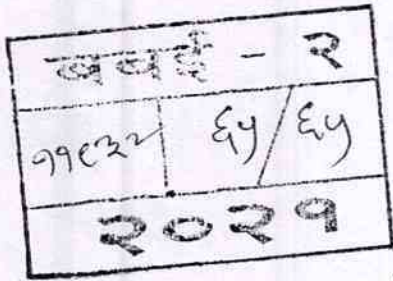 बबई - २
११९३२ ६५/६५
२०२१